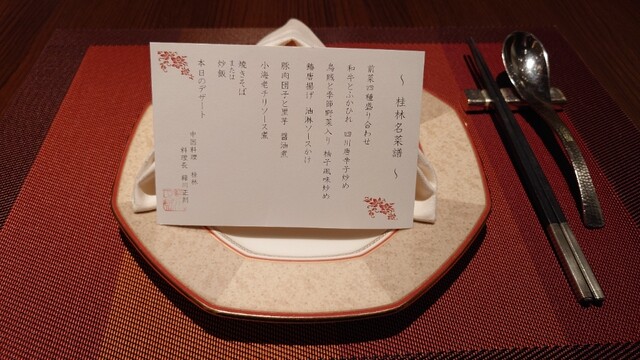 ～ 桂林名菜譜 ～
前菜四種盛り合わせ
和牛とふかひれ 四川唐辛子炒め
烏賊と季節野菜入り 柚子風味炒め
鶏唐揚げ 油淋ソースかけ
豚肉団子と里芋 醤油煮
小海老チリソース煮
焼きそば
または
炒飯
本日のデザート
中国料理 桂林
料理長